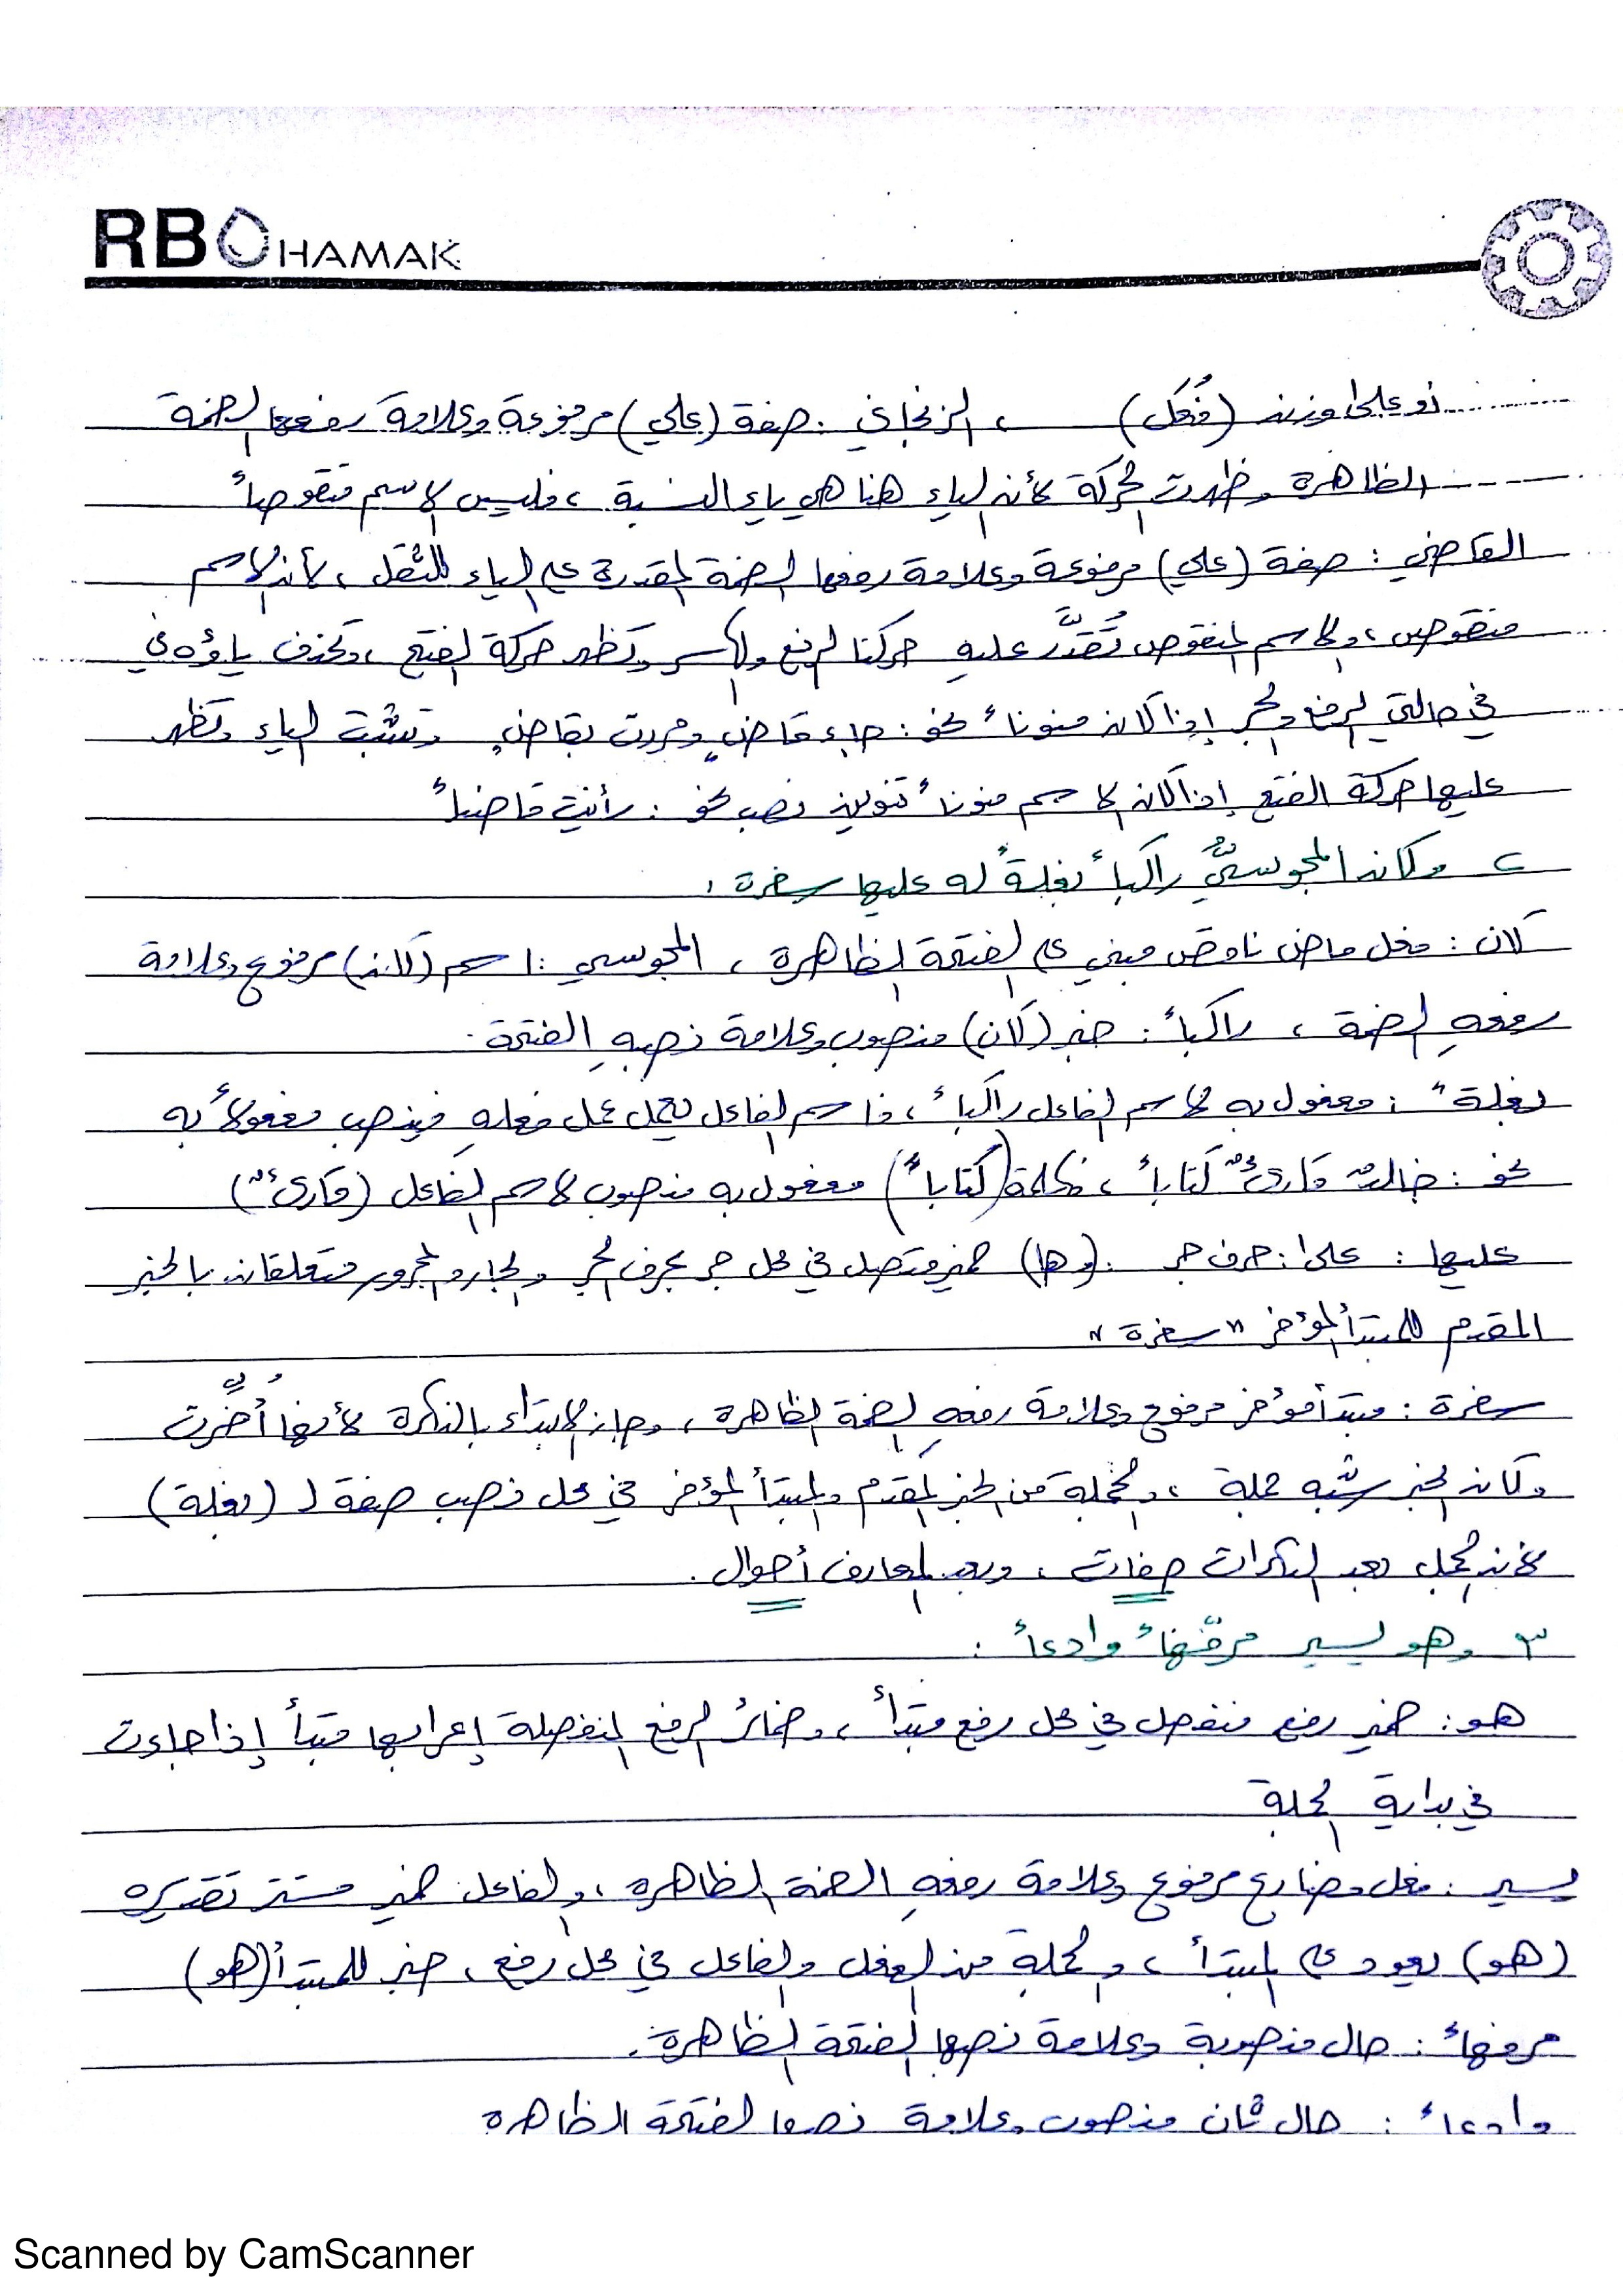 RB HAMAK
أو على وزن (فُعَل) ، الزنجاني : صفة (علي) مرفوعة وعلامة رفعها الضمة
الظاهرة وظهرت الحركة لأن الياء هنا هي ياء النسبة ، فليس الاسم منقوصاً
القاضي : صفة (علي) مرفوعة وعلامة رفعها الضمة المقدرة على الياء للثقل ، لأن الاسم
منقوص ، والاسم المنقوص تُقَدَّر عليهِ حركتا الرفع والكسر وتظهر حركة الفتح ، وتحذف ياؤه في
في حالتي الرفع والجر إذا كان منوناً نحو : جاء قاضٍ ومررت بقاضٍ وتثبت الياء وتظهر
عليها حركة الفتح إذا كان الاسم منوناً تنوين نصب نحو : رأيت قاضياً
٢ وكان المجوسيُّ راكباً بغلةً له عليها سفرة :
كان : فعل ماض ناقص مبني على الفتحة الظاهرة ، المجوسي : اسم (كان) مرفوع وعلامة
رفعهِ الضمة ، راكباً : خبر (كان) منصوب وعلامة نصبهِ الفتحة .
بغلةً : مفعول به لاسم الفاعل راكباً ، فاسم الفاعل يعمل عمل فعلهِ فينصب مفعولاً به
نحو : خالدٌ قارئٌ كتاباً ، فكلمة (كتاباً) مفعول به منصوب لاسم الفاعل (قارئٌ)
عليها : على : حرف جر . (وها) ضمير متصل في محل جر بحرف الجر والجار والمجرور متعلقان بالخبر
المقدم للمبتدأ المؤخر "سفرة"
سفرة : مبتدأ مؤخر مرفوع وعلامة رفعهِ الضمة الظاهرة ، وجاز الابتداء بالنكرة لأنها أُخِّرت
وكان الخبر شبه جملة ، والجملة من الخبر المقدم والمبتدأ المؤخر في محل نصب صفة لـ (بغلة)
لأن الجمل بعد النكرات صفات ، وبعد المعارف أحوال .
٣ وهو يسير مرفّهاً وادعاً :
هو : ضمير رفع منفصل في محل رفع مبتدأ ، وضمائر الرفع المنفصلة إعرابها مبتدأ إذا جاءت
في بداية الجملة
يسير : فعل مضارع مرفوع وعلامة رفعهِ الضمة الظاهرة ، والفاعل ضمير مستتر تقديره
(هو) يعود على المبتدأ ، والجملة من الفعل والفاعل في محل رفع ، خبر للمبتدأ (هو)
مرفهاً : حال منصوبة وعلامة نصبها الفتحة الظاهرة .
وادعاً : حال ثان منصوب وعلامة نصبها الفتحة الظاهرة
Scanned by CamScanner